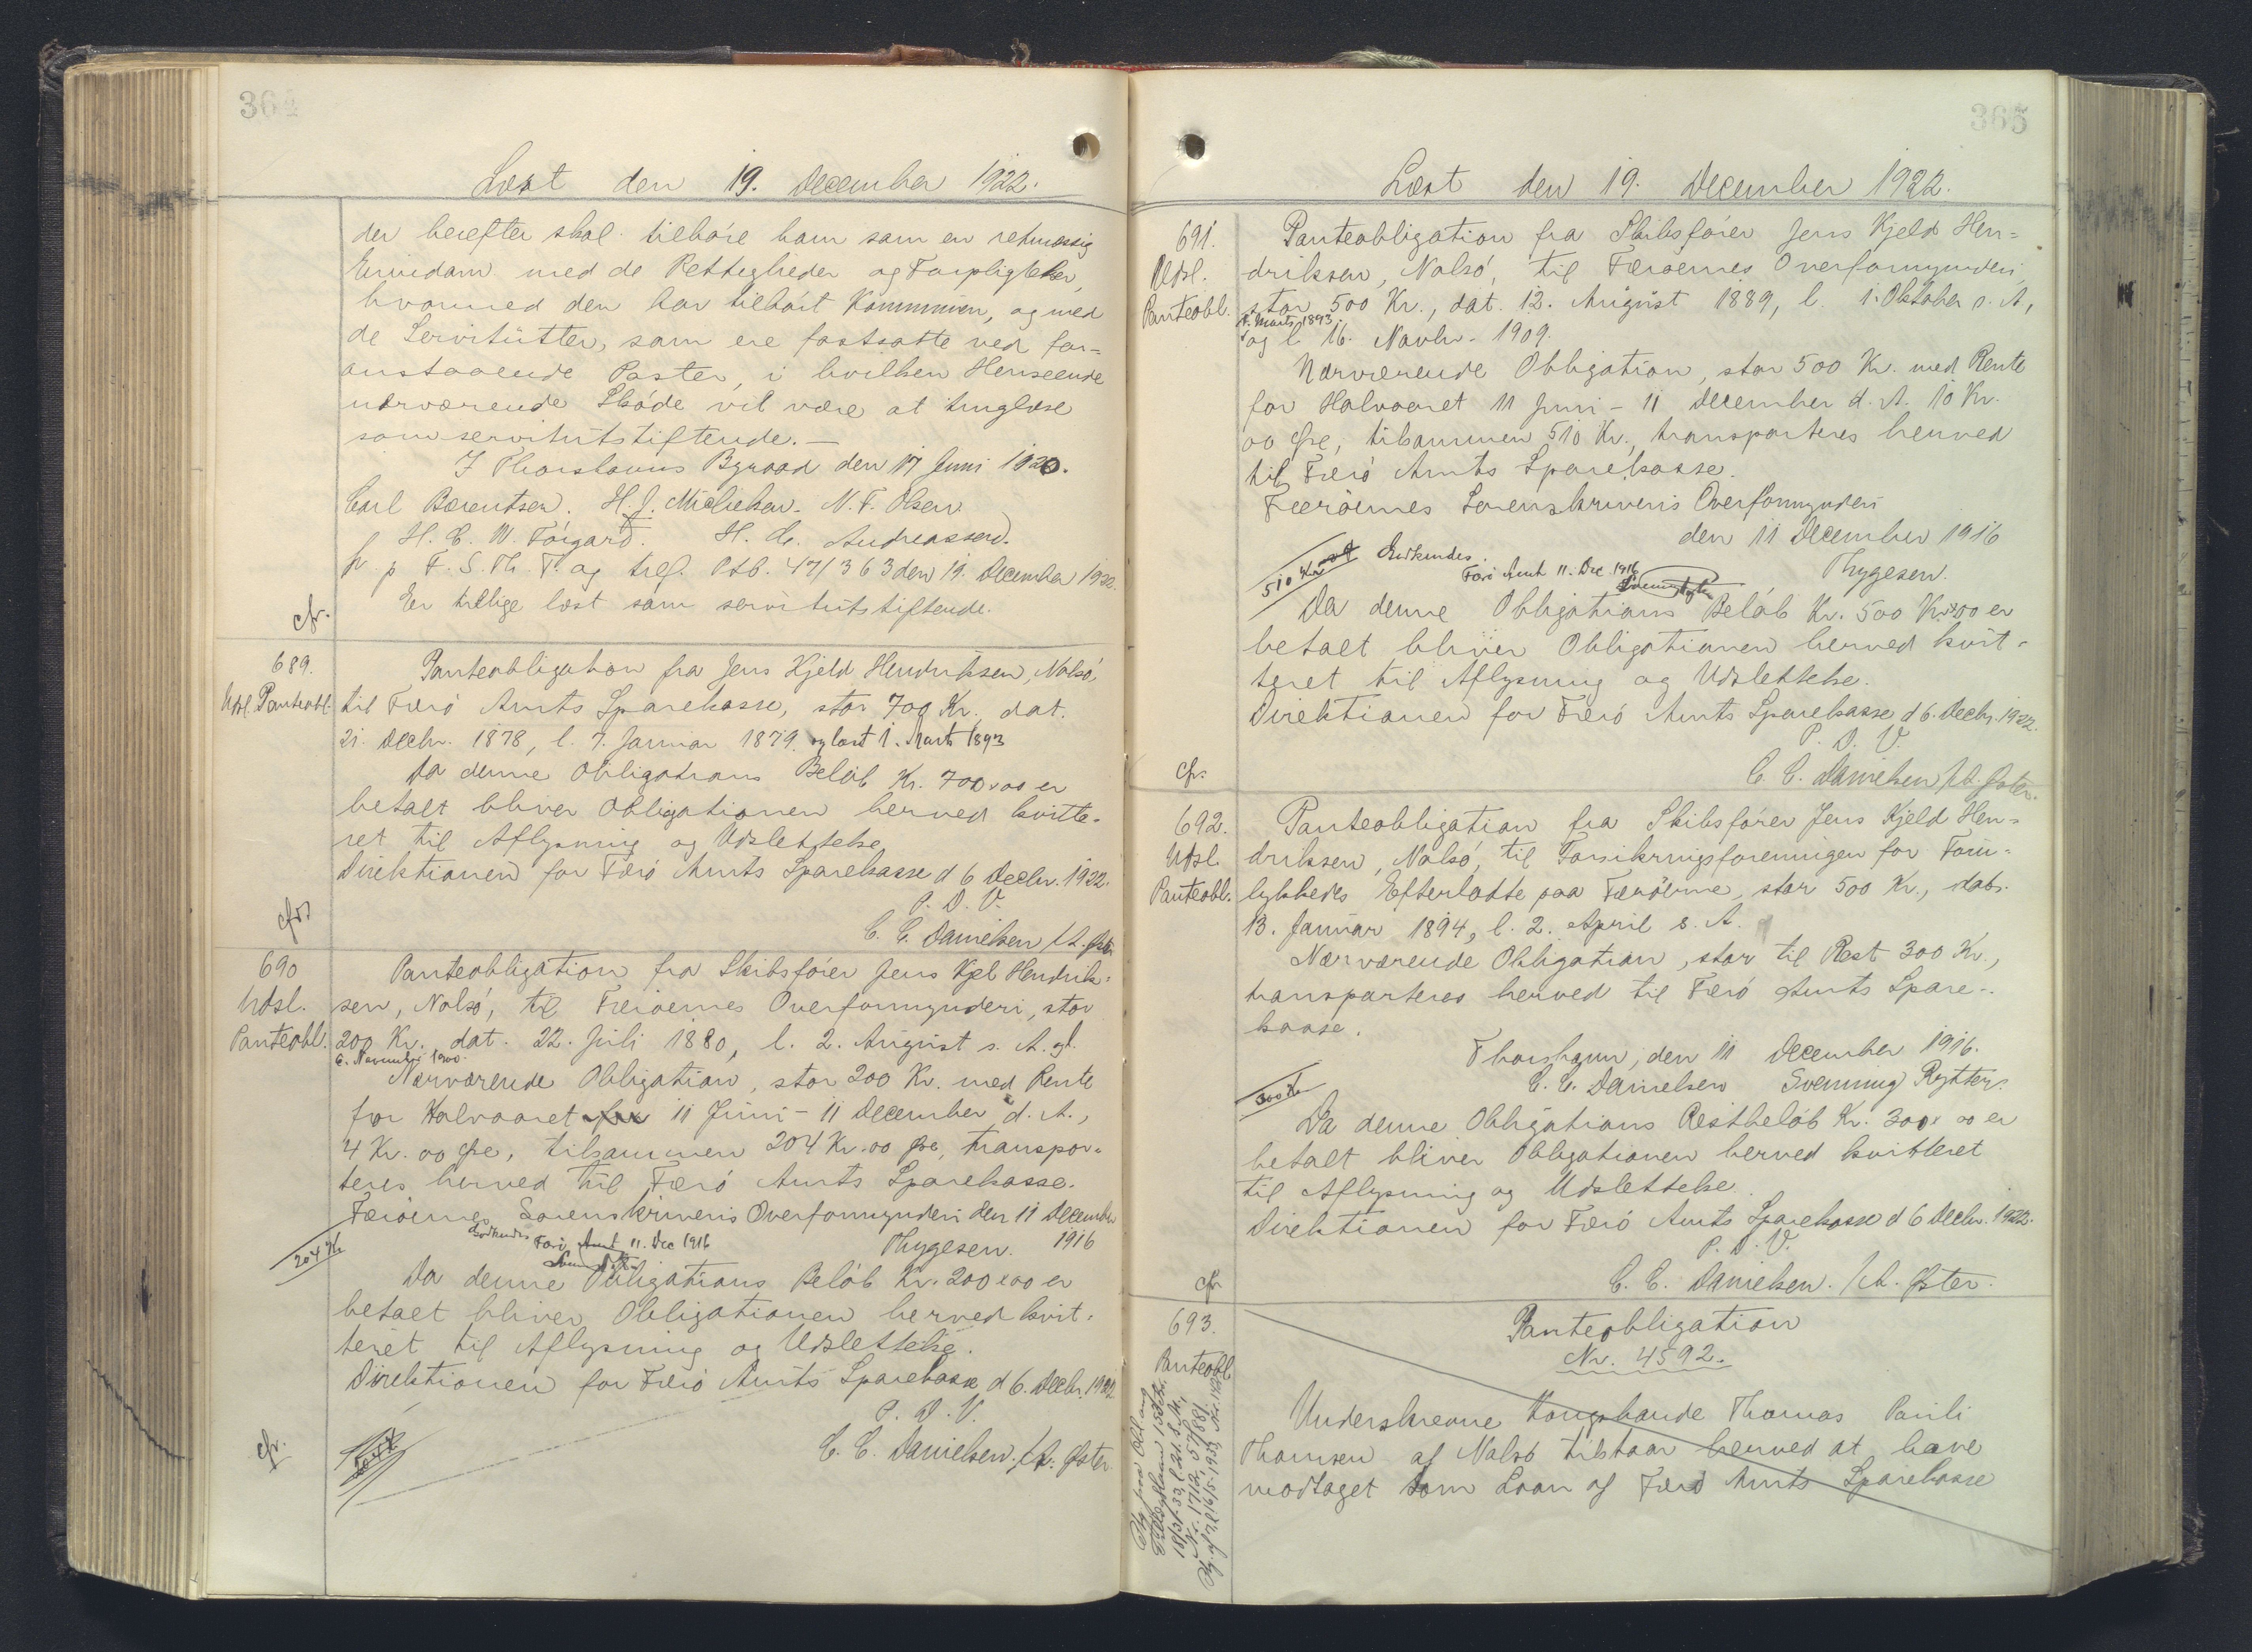 364
Læst den 19. December 1922.
der herefter skal tilhøre ham som en retmæssig
Eiendom med de Rettigheder og Forpligtelser,
hvormed den har tilhørt Kommunen, og med
de Servitutter, som ere fastsatte ved for-
anstaaende Poster, i hvilken Henseende
nærværende Skøde vil være at tinglæse
som servitutstiftende.—
I Thorshavns Byraad den 17 Juni 1920.
Carl Bærentsen. H. J. Michelsen. N. F. Olsen
H. C. W. Tórgarð. H. C. Andreassen.
p. F. S. Th. T. og tref. Ptb. 47/363 den 19. December 1922.
Er tillige læst som servitutstiftende.
cfr.
689.
Udsl. Panteobl.
Panteobligation fra Jens Kjeld Hendriksen, Nolsø,
til Færø Amts Sparekasse, stor 700 Kr. dat.
21. Decbr. 1878, l. 7. Januar 1879. og læst 1. Marts 1893
Da denne Obligations Beløb Kr. 700,00 er
betalt bliver Obligationen herved kvitte-
ret til Aflysning og Udslettelse
Direktionen for Færø Amts Sparekasse d 6 Decbr. 1922.
P. D. V.
C. C. Danielsen / A. Øster
cfr.
690
Udsl.
Panteobl.
Panteobligation fra Skibsfører Jens Kjel Hendrik-
sen, Nolsø, til Færøernes Overformynderi, stor
200 Kr. dat. 22. Juli 1880, l. 2. August s. A. og l.
6. November 1900.
Nærværende Obligation, stor 200 Kr. med Rente
for Halvaaret fra 11 Juni - 11 December d. A.,
4 Kr. 00 Øre, tilsammen 204 Kr. 00 Øre, transpor-
teres herved til Færø Amts Sparekasse.
Færøernes Sorenskriveris Overformynderi den 11 December
1916
Thygesen.
Godkendes Færø Amt 11. Dec 1916
204 Kr
Da denne Obligations Beløb Kr. 200,00 er
betalt bliver Obligationen herved kvit-
teret til Aflysning og Udslettelse.
Direktionen for Færø Amts Sparekasse d 6. Decbr. 1922
P. D. V.
C. C. Danielsen. / A. Øster.
cfr.
365
Læst den 19. December 1922.
691.
Udsl.
Panteobl.
Panteobligation fra Skibsfører Jens Kjeld Hen-
driksen, Nolsø, til Færøernes Overformynderi,
stor 500 Kr., dat. 12. August 1889, l. 1. Oktober s. A,
1. Marts 1893.
og l. 16. Novbr. 1909.
Nærværende Obligation, stor 500 Kr. med Rente
for Halvaaret 11 Juni - 11 December d. A. 10 Kr.
00 Øre, tilsammen 510 Kr., transporteres herved
til Færø Amts Sparekasse.
Færøernes Sorenskriveris Overformynderi
den 11 December 1916
Thygesen.
510 Kr
Godkendes.
Færø Amt 11. Dec 1916
Da denne Obligations Beløb Kr. 500 Kr. 00 er
betalt bliver Obligationen herved kvit-
teret til Aflysning og Udslettelse.
Direktionen for Færø Amts Sparekasse d 6. Decbr. 1922.
P. D. V.
C. C. Danielsen / A. Øster.
cfr.
692.
Udsl.
Panteobl.
Panteobligation fra Skibsfører Jens Kjeld Hen-
driksen, Nolsø, til Forsikringsforeningen for Foru-
lykkedes Efterladte paa Færøerne, stor 500 Kr., dat.
13. Januar 1894, l. 2. April s. A.
Nærværende Obligation, stor til Rest 300 Kr.,
transporteres herved til Færø Amts Spare-
kasse.
Thorshavn, den 11 December 1916.
C. C. Danielsen Svenning Rytter.
300 Kr
Da denne Obligations Restbeløb Kr. 300, 00 er
betalt bliver Obligationen herved kvitteret
til Aflysning og Udslettelse.
Direktionen for Færø Amts Sparekasse d 6 Decbr. 1922.
P. D. V.
C. C. Danielsen. / A. Øster.
cfr
693.
Panteobl.
Panteobligation
Nr. 4592.
Underskrevne Kongsbonde Thomas Pauli
Thomsen af Nolsø tilstaar herved at have
modtaget som Laan af Færø Amts Sparekasse